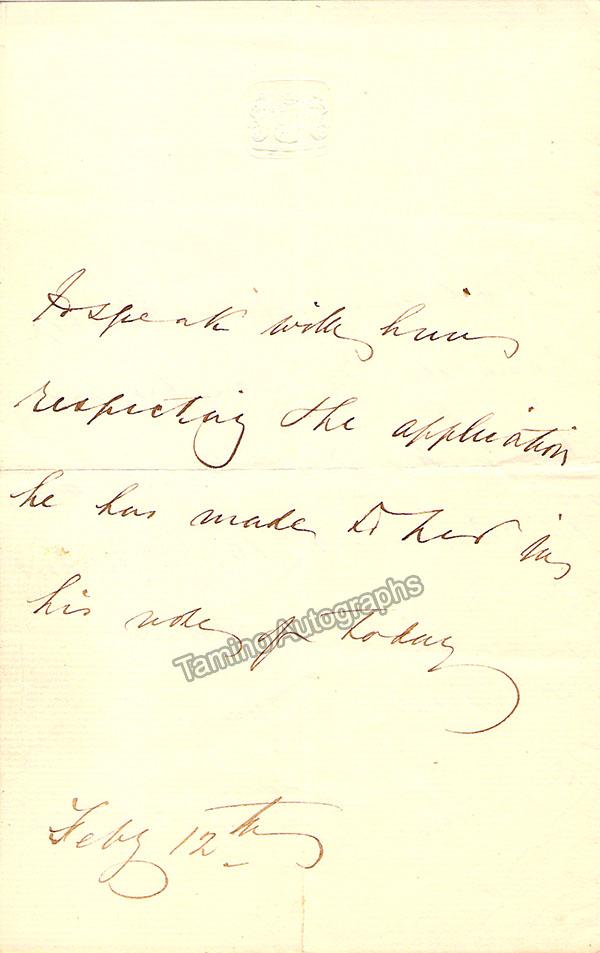 to speak with him
respecting the application
he has made to her in
his note of today
Taming Autographs
Feby 12th